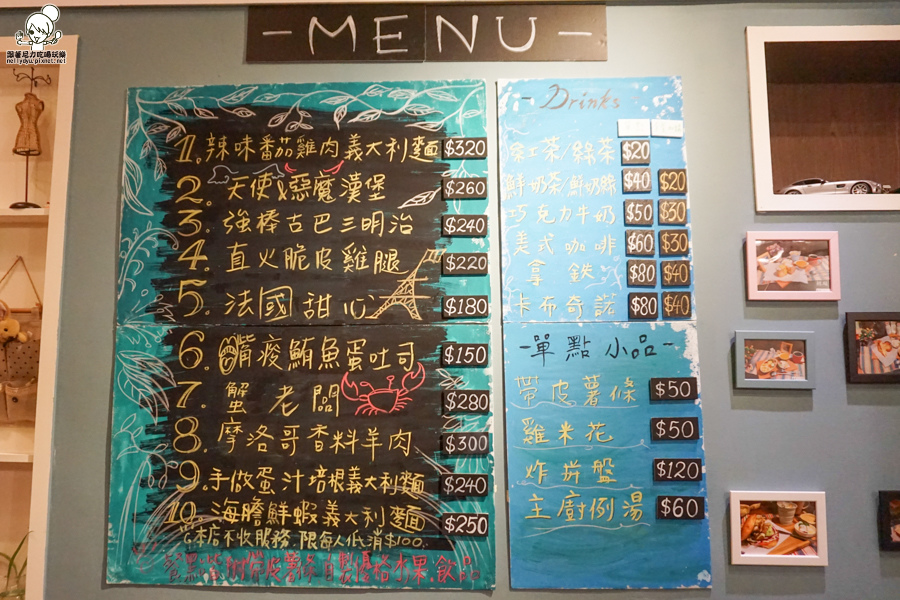 跟著尼力吃喝玩樂
nellydyu.pixnet.net
-MENU-
1. 辣味番茄雞肉義大利麵 $320
2. 天使&惡魔漢堡 $260
3. 強棒古巴三明治 $240
4. 直火脆皮雞腿 $220
5. 法國甜心 $180
6. 嘴疫鮪魚蛋吐司 $150
7. 蟹老闆 $280
8. 摩洛哥香料羊肉 $300
9. 手做蛋汁培根義大利麵 $240
10. 海膽鮮蝦義大利麵 $250
本店不收服務,限每人低消$100.
餐點皆附帶皮薯條自製優格水果.飲品
- Drinks -
紅茶/綠茶 $20
鮮奶茶/鮮奶綠 $40 $20
巧克力牛奶 $50 $30
美式咖啡 $60 $30
拿鉄 $80 $40
卡布奇諾 $80 $40
-單點小品-
帶皮薯條 $50
雞米花 $50
炸拼盤 $120
主廚例湯 $60